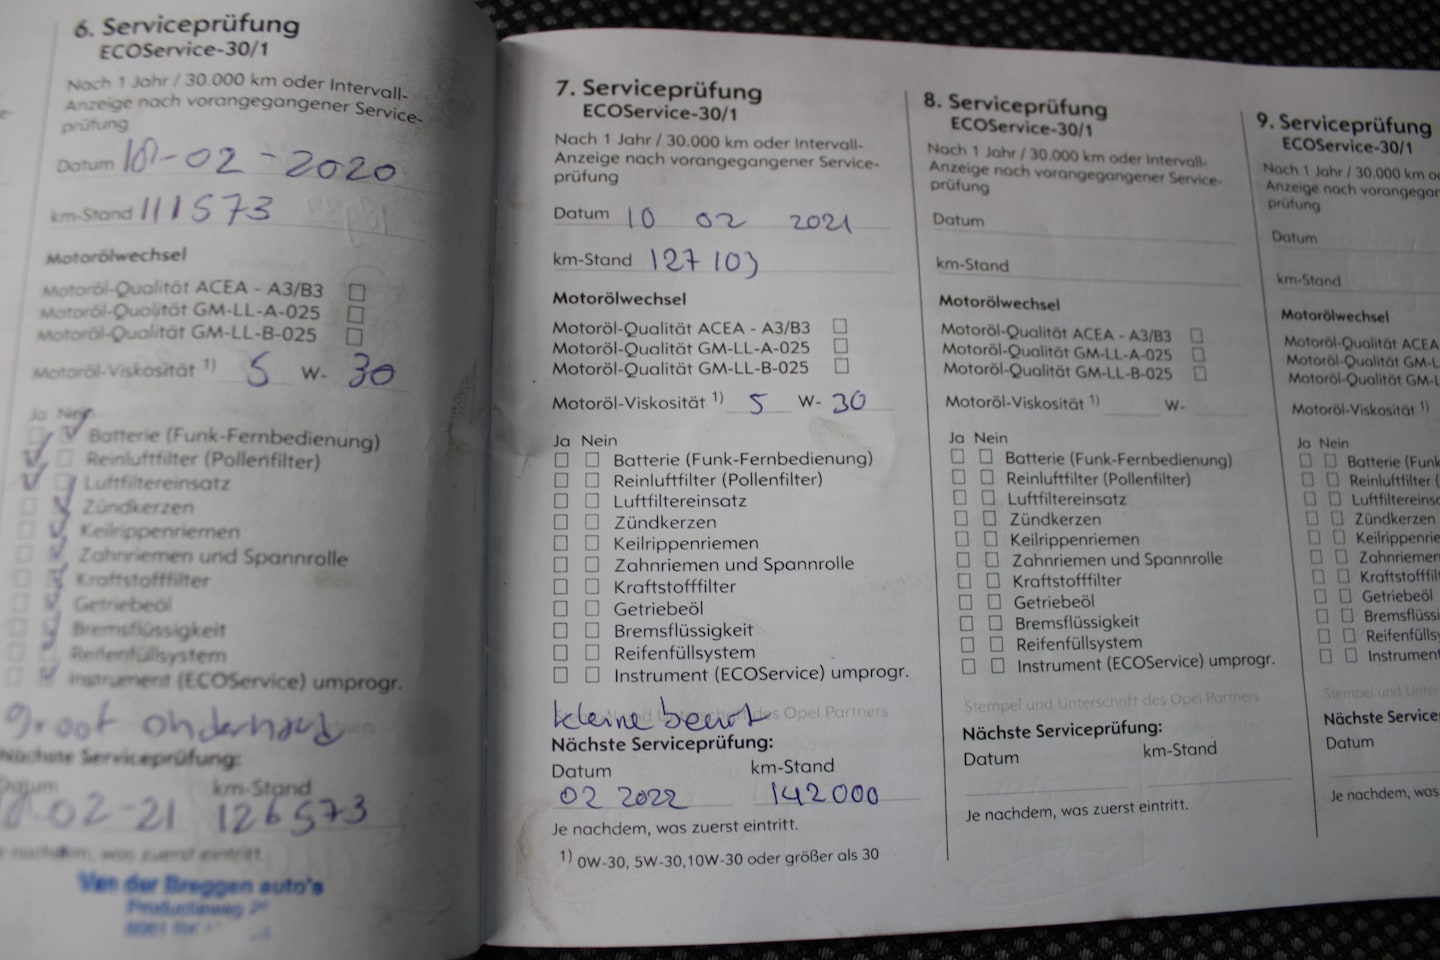 6. Serviceprüfung
ECOService-30/1
Nach 1 Jahr / 30.000 km oder Intervall-
Anzeige nach vorangegangener Service-
prüfung
Datum 10-02-2020
km-Stand 111573
Motorölwechsel
Motoröl-Qualität ACEA - A3/B3
Motoröl-Qualität GM-LL-A-025
Motoröl-Qualität GM-LL-B-025
Motoröl-Viskosität 1) 5 W- 30
Ja Nein
Batterie (Funk-Fernbedienung)
Reinluftfilter (Pollenfilter)
Luftfiltereinsatz
Zündkerzen
Keilrippenriemen
Zahnriemen und Spannrolle
Kraftstofffilter
Getriebeöl
Bremsflüssigkeit
Reifenfüllsystem
Instrument (ECOService) umprogr.
groot onderhoud
Nächste Serviceprüfung:
Datum km-Stand
02-21 126573
nachdem, was zuerst eintritt.
Van der Breggen auto's
Productieweg
7. Serviceprüfung
ECOService-30/1
Nach 1 Jahr / 30.000 km oder Intervall-
Anzeige nach vorangegangener Service-
prüfung
Datum 10 02 2021
km-Stand 127103
Motorölwechsel
Motoröl-Qualität ACEA - A3/B3
Motoröl-Qualität GM-LL-A-025
Motoröl-Qualität GM-LL-B-025
Motoröl-Viskosität 1) 5 W- 30
Ja Nein
Batterie (Funk-Fernbedienung)
Reinluftfilter (Pollenfilter)
Luftfiltereinsatz
Zündkerzen
Keilrippenriemen
Zahnriemen und Spannrolle
Kraftstofffilter
Getriebeöl
Bremsflüssigkeit
Reifenfüllsystem
Instrument (ECOService) umprogr.
kleine beurt
und Unterschrift des Opel Partners
Nächste Serviceprüfung:
Datum km-Stand
02 2022 142000
Je nachdem, was zuerst eintritt.
1) 0W-30, 5W-30,10W-30 oder größer als 30
8. Serviceprüfung
ECOService-30/1
Nach 1 Jahr / 30.000 km oder Intervall-
Anzeige nach vorangegangener Service-
prüfung
Datum
km-Stand
Motorölwechsel
Motoröl-Qualität ACEA - A3/B3
Motoröl-Qualität GM-LL-A-025
Motoröl-Qualität GM-LL-B-025
Motoröl-Viskosität 1) W-
Ja Nein
Batterie (Funk-Fernbedienung)
Reinluftfilter (Pollenfilter)
Luftfiltereinsatz
Zündkerzen
Keilrippenriemen
Zahnriemen und Spannrolle
Kraftstofffilter
Getriebeöl
Bremsflüssigkeit
Reifenfüllsystem
Instrument (ECOService) umprogr.
Stempel und Unterschrift des Opel Partners
Nächste Serviceprüfung:
Datum km-Stand
Je nachdem, was zuerst eintritt.
9. Serviceprüfung
ECOService-30/1
Nach 1 Jahr / 30.000 km o
Anzeige nach vorangegan
prüfung
Datum
km-Stand
Motorölwechsel
Motoröl-Qualität ACEA
Motoröl-Qualität GM-L
Motoröl-Qualität GM-L
Motoröl-Viskosität 1)
Ja Nein
Batterie (Funk
Reinluftfilter (
Luftfiltereinsa
Zündkerzen
Keilrippenrie
Zahnriemen
Kraftstofffilt
Getriebeöl
Bremsflüssi
Reifenfülls
Instrument
Stempel und Unter
Nächste Service
Datum
Je nachdem, was